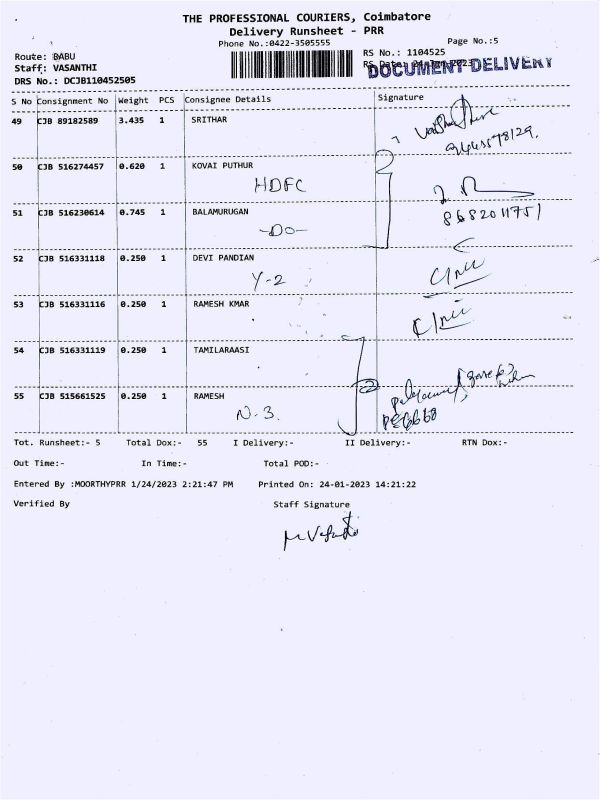 THE PROFESSIONAL COURIERS, Coimbatore
Delivery Runsheet - PRR
Phone No.:0422-3505555
Page No.:5
Route: BABU
RS No.: 1104525
Staff: VASANTHI
RS Date: 24-Jan-2023
DOCUMENT DELIVERY
DRS No.: DCJB110452505
S No Consignment No Weight PCS Consignee Details Signature
49 CJB 89182589 3.435 1 SRITHAR
50 CJB 516274457 0.620 1 KOVAI PUTHUR
HDFC
51 CJB 516230614 0.745 1 BALAMURUGAN
8682011751
-DO-
52 CJB 516331118 0.250 1 DEVI PANDIAN
Y-2
53 CJB 516331116 0.250 1 RAMESH KMAR
54 CJB 516331119 0.250 1 TAMILARAASI
55 CJB 515661525 0.250 1 RAMESH
N-3.
Tot. Runsheet:- 5 Total Dox:- 55 I Delivery:- II Delivery:- RTN Dox:-
Out Time:- In Time:- Total POD:-
Entered By :MOORTHYPRR 1/24/2023 2:21:47 PM Printed On: 24-01-2023 14:21:22
Verified By Staff Signature